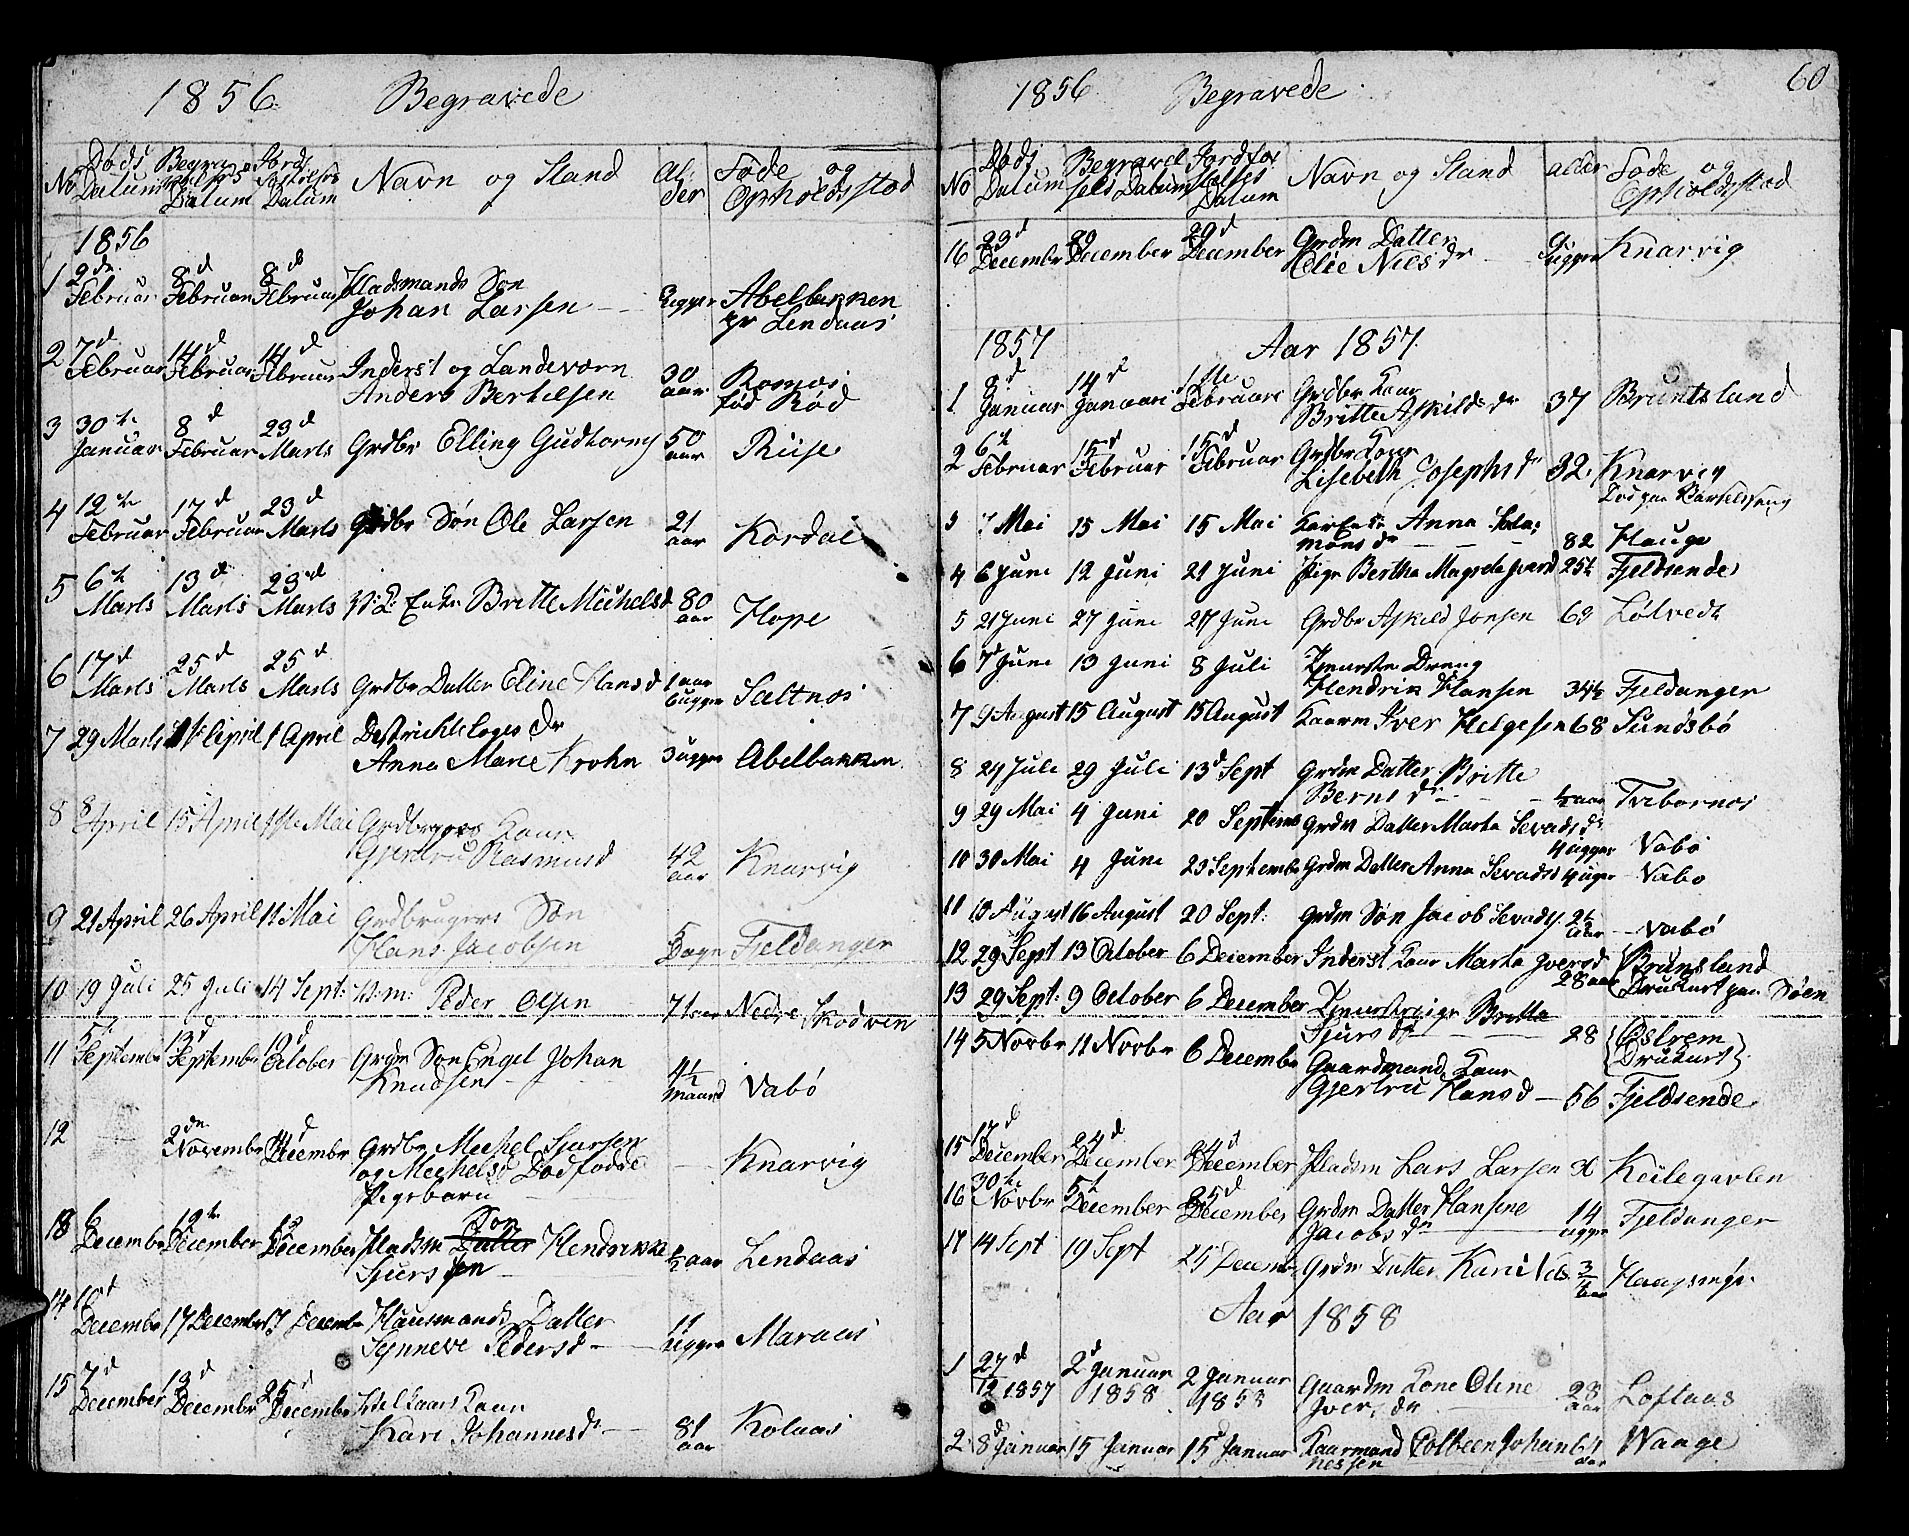 1856 Begravede
No Døds Datum Begravelses Datum Jordfæstelses Datum Navn og Stand Alder Føde og Opholdsstæd
1856
1 2den Februar 8d Februar 8d Februar Pladsmands Søn
Johan Larsen 3 ugger Abelbakken
pr Lendaas
2 7d Februar 14d Februar 14d Februar Inderst og Landeværn
Anders Bertelsen 30 aar
fød Rød
3 30te Januar 8d Februar 23d Marts Grdbr Elling Gudtorms 50 aar Riise
4 12te Februar 17d Februar 23d Marts Grdbr Søn Ole Larsen 21 aar Kordal
5 6te Marts 13d Marts 23d Marts Enke Britte Mickelsd 80 aar Hope
6 17d Marts 25d Marts 25d Marts Grdbr Datter Eline Hansd 1 aar 6 ugger Saltnes
7 29 Marts 1te April 1 April Destriktsloges Dr
Anna Marie Krohn 3 ugger Abelbakken
8 8 April 15 April 1ste Mai Grdbrugers Kaar
Gjertrud Rasmusd 42 aar Knarvig
9 21 April 26 April 11 Mai Grdbrugers Søn
Hans Jacobsen 5 Dage Fjeldanger
10 19 Juli 25 Juli 14 Sept: Peder Olsen 71 aar Nedre Skodven
11 5te September 13d September 10d October Grdm Søn Engel Johan
Knudsen 4½ Maand Vabø
12 2den November 14d December Grdbr Mickel Sjursen
og Mickelsd Dødfødde Knarvig
Pigebarn
13 6 December 12te December 12 December Pladsm Søn Datter Hendrikke
Sjursen ½ aar Lendaas
14 10d December 17 December 17 December Huusmands Datter
Synneve Pedersd 11 ugger Maraas
15 7d December 13d December 25d December Kaar
Kari Johannesdr 81 aar Kolaas
1856 Begravede 60
No Døds Datum Begravelses Datum Jordfæstelses Datum Navn og Stand alder Føde og Opholdsstæd
16 23d December 29 December 29d December Grdm Datter
Elie Nilsdr ugger Knarvig
1857 Aar 1857
1 8d Januar 14d Januari 1ste Februari Grdbr Kaar
Britte Askildsdr 37 Bruntsland
2 6te Februar 15d Februar 15d Februar Grdbr Kaar
Lisebeth Josephsdr 32. Knarvig
3 7 Mai 15 Mai 15 Mai Anna Sala=
monsdr 82 Hauge
4 6 Juni 12 Juni 21 Juni Pige Bertha Magdela 25½ Fjeldsende
5 21 Juni 27 Juni 27 Juni Grdbr Askild Jonsen 63 Lølvedt
6 7d Juni 13 Juni 8 Juli Tjeneste Dreng
Hendrik Hansen 34½ Fjeldanger
7 9 August 15 August 15 August Kaarm Iver Helgesen 68 Sundsbø
8 24 Juli 29 Juli 13d Sept Grdm Datter Britte
Berntdr ½ aar Tvebornes
9 29 Mai 4 Juni 20 Septemb Grdm Datter Marta Sevadsdr 4 ugger Vabø
10 30 Mai 4 Juni 23 Septembr Grdm Datter Anna Sevadsd 4 uger Vabø
11 10 August 16 August 20 Sept: Grdm Søn Jacob Sevads. 2½ aar Vabø
12 29 Sept 13 October 6 December Inderst Kaar Marta Iversd 28 aar Brunsland
Druknet paa Søen
13 29 Sept: 9 October 6 December Tjenestepige Britta
Sjursdr 28 Østrem
Druknet
14 5 Novbr 11 Novbr 6 Decembr Gaardmands Kaar
Gjertru Hansd 56 Fjeldsende
15 17d December 24d December 24d December Pladsm Lars Larsen Keilegavlen
16 30te Novbr 5te December 25d December Grdm Datter Hansine
Jacobsdr 14 ugger Fjeldanger
17 14 Sept 19 Sept 25 Decemb Grdm Datter Kari Nils ¾ aar
Aar 1858
1 27d/12 1857 2d Januar 1858 2 Januar 1858 Gaardm Kone Oline
Iversdr 28 aar Loftaas
2 8d Januar 15 Januar 15d Januar Kaarmand Colbeen Johan
nessen 61 aar Waage